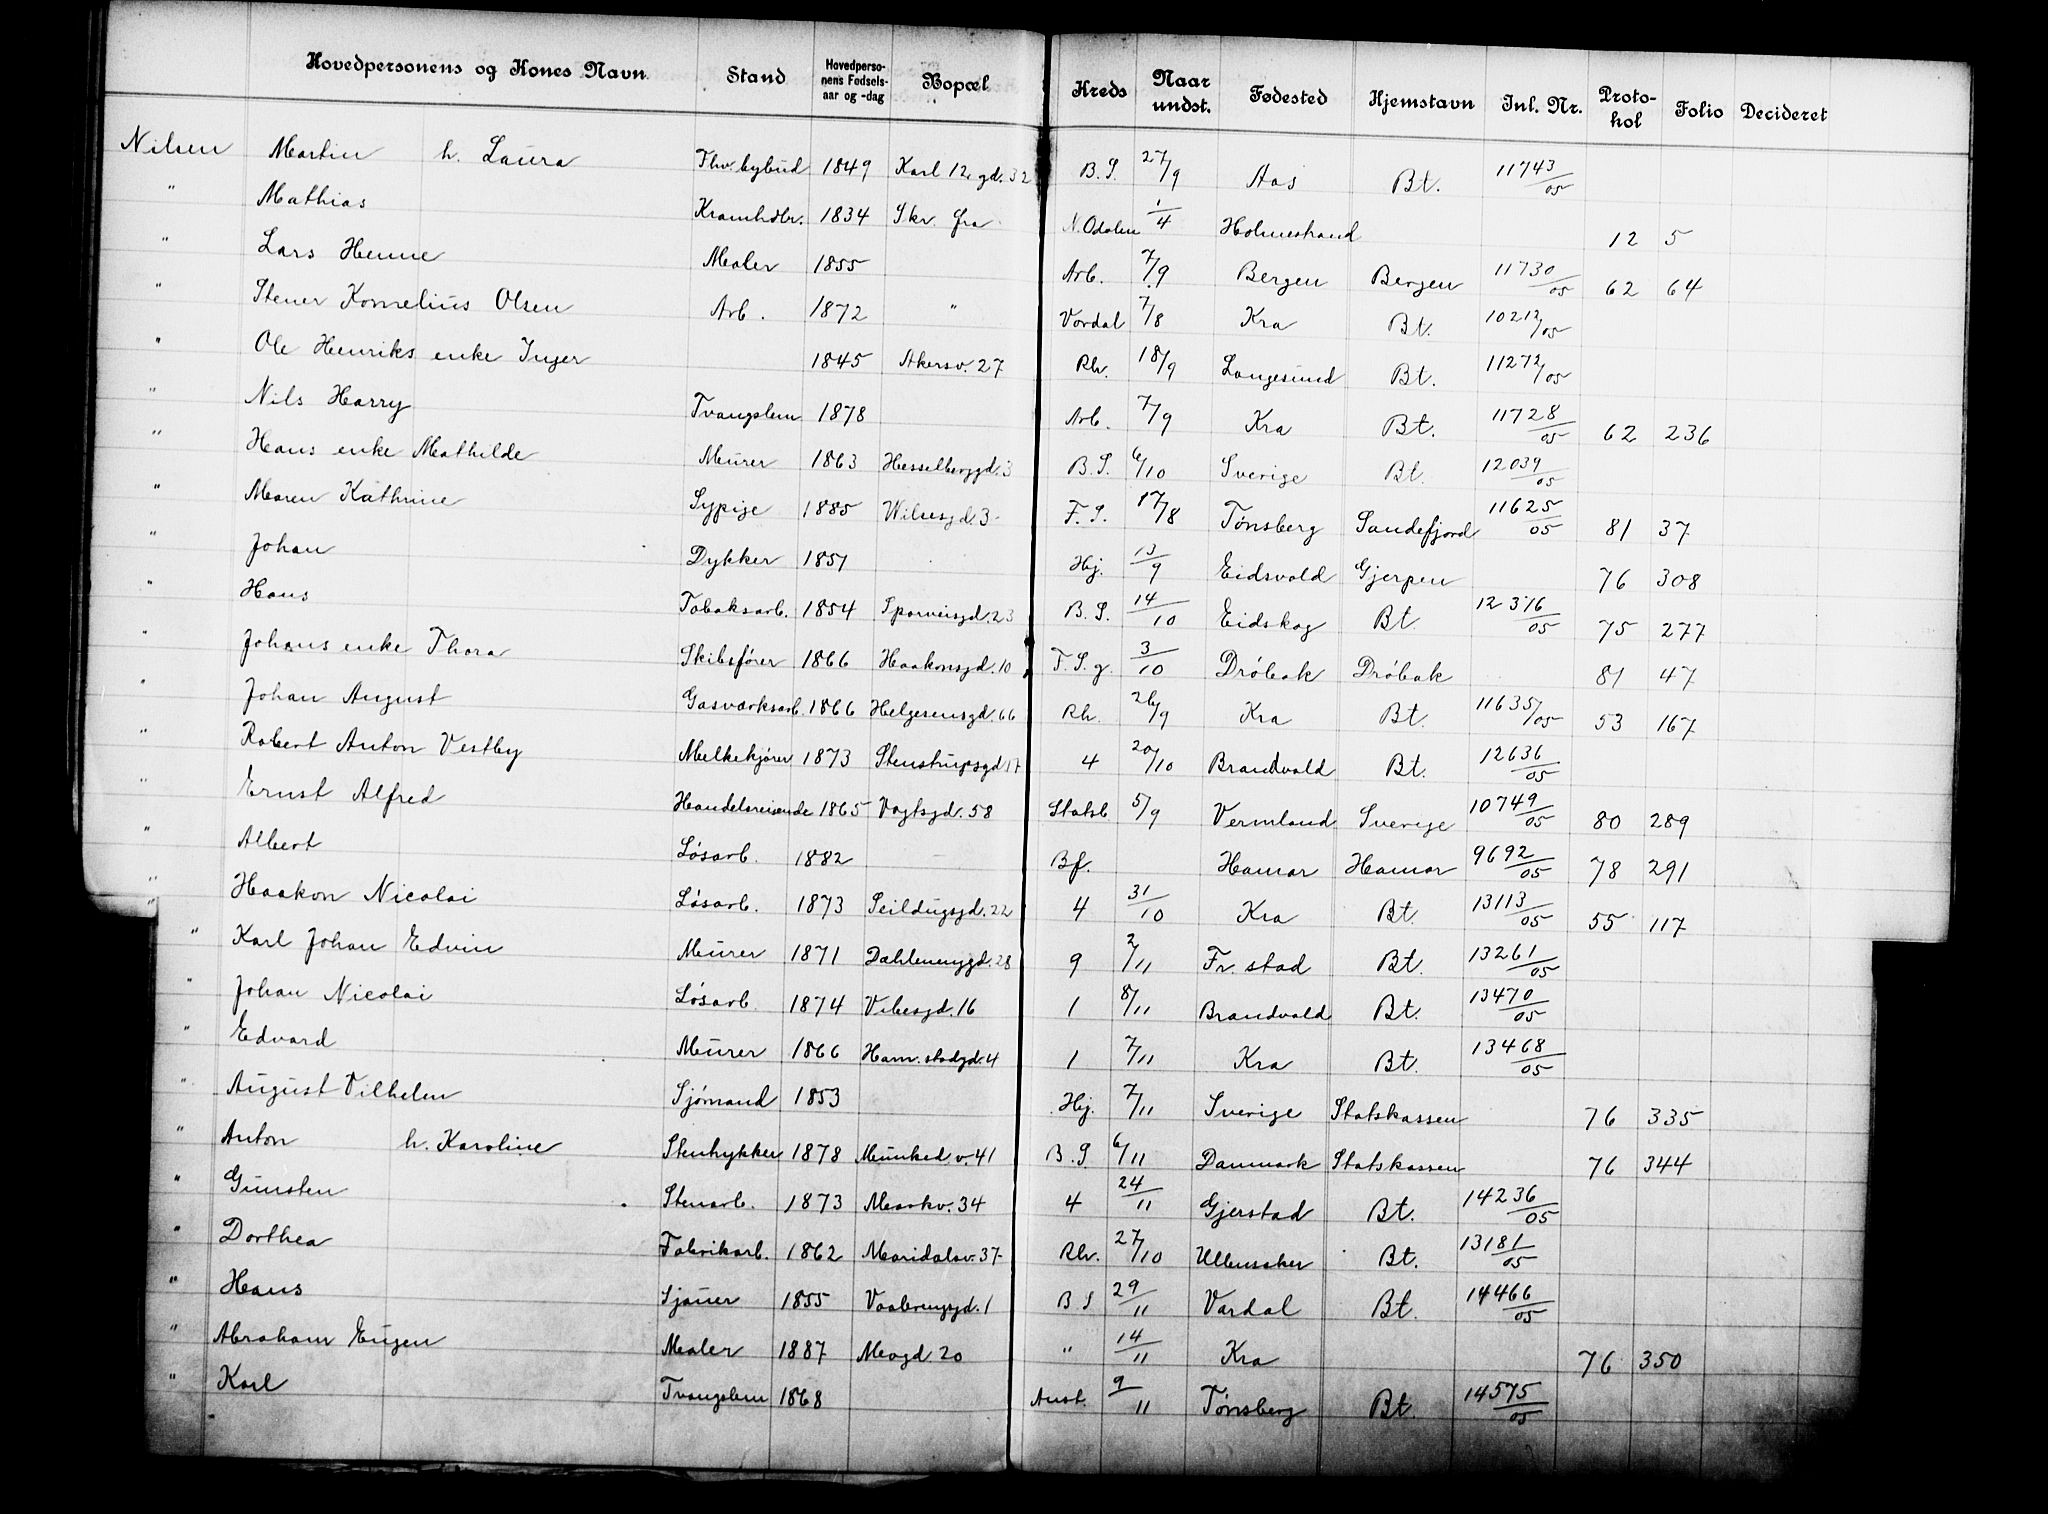 Hovedpersonens og Kones Navn Stand Hovedpersonens Fødselsaar og -dag Bopæl Kreds Naar undst. Fødested Hjemstavn Inl. Nr. Protokol Folio Decideret
Nilsen Martin h. Laura Fhv. bybud 1849 Karl 12 gd. 32 B.S. 27/9 Aas Bt. 11743/05
" Mathias Kramhdlr. 1834 Skr. fra N. Odalen 1/4 Holmestrand 12 5
" Lars Henne Maler 1855 Arb. 7/9 Bergen Bergen 11730/05 62 64
" Stener Kornelius Olsen Arb. 1872 " Vordal 7/8 Kra Bt. 10212/05
" Ole Henriks enke Inger 1845 Akersv. 27 Rh. 18/9 Langesund Bt. 11272/05
" Nils Harry Tvangslem 1878 Arb. 7/9 Kra Bt. 11728/05 62 236
" Hans enke Mathilde Murer 1863 Hesselberggd. 3 B.S. 6/10 Sverige Bt. 12039/05
" Maren Kathrine Sypige 1885 Wilsesgd. 3 F.S. 17/8 Tønsberg Sandefjord 11625/05 81 37
" Johan Dykker 1851 Hj. 13/9 Eidsvold Gjerpen 76 308
" Hans Tobaksarb. 1854 Sporveisgd. 23 B.S. 14/10 Eidskog Bt. 12376/05 75 277
" Johans enke Thora Skibsfører 1866 Haakonsgd. 10 F.S.g. 3/10 Drøbak Drøbak 81 47
" Johan August Gasværksarb. 1866 Helgesensgd. 66 Rh. 26/9 Kra Bt. 11635/05 53 167
" Robert Anton Vestby Melkekjører 1873 Stenstrupsgd 17 4 20/10 Brandvold Bt. 12636/05
" Ernst Alfred Handelsreisende 1865 Vogtsgd. 58 Statsb 5/9 Vermland Sverige 10749/05 80 289
" Albert Løsarb. 1882 Bf. Hamar Hamar 9692/05 78 291
" Haakon Nicolai Løsarb. 1873 Seildugsgd. 22 4 31/10 Kra Bt. 13113/05 55 117
" Karl Johan Edvin Murer 1871 Dahlenenggd. 28 9 2/11 Fr. stad Bt. 13261/05
" Johan Nicolai Løsarb. 1874 Vibesgd. 16 1 8/11 Brandvold Bt. 13470/05
" Edvard Murer 1866 Ham. stadgd. 4 1 7/11 Kra Bt. 13468/05
" August Vilhelm Sjømand 1853 Hj. 7/11 Sverige Statskassen 76 335
" Anton h. Karoline Stenhykker 1878 Munked. v. 41 B.S 6/11 Danmark Statskassen 76 344
" Gunsten Stenarb. 1873 Markv. 34 4 24/11 Gjerstad Bt. 14236/05
" Dorthea Fabrikarb. 1862 Maridalsv. 37 Rh. 27/10 Ullensaker Bt. 13181/05
" Hans Sjauer 1855 Vaalerenggd. 1 B S 29/11 Vardal Bt. 14466/05
" Abraham Eugen Maler 1887 Meogd. 20 " 14/11 Kra 76 350
" Karl Tvangslem 1868 Anst. 9/11 Tønsberg Bt. 14575/05